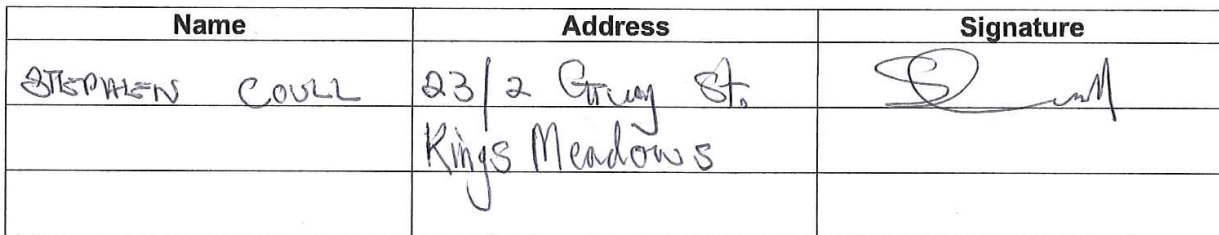 Name Address Signature
STEPHEN COULL 23/2 Guy St.
Kings Meadows